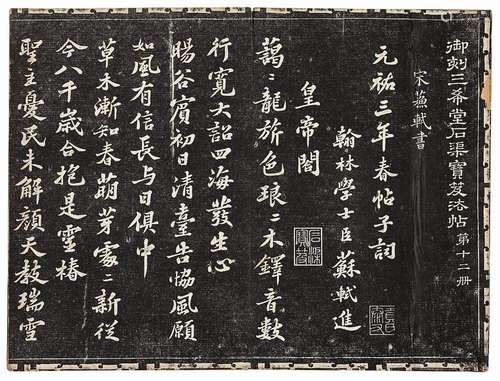 御刻三希堂石渠寶笈法帖 第十二冊
宋蘇軾書
元祐三年春帖子詞
翰林學士臣蘇軾進
皇帝閣
藹〻龍旂色琅〻木鐸音數
行寬大詔四海發生心
暘谷賓初日清臺告協風願
如風有信長與日俱中
草木漸知春萌芽處〻新從
今八千歲合抱是靈椿
聖主憂民未解顏天教瑞雪
石渠寶笈